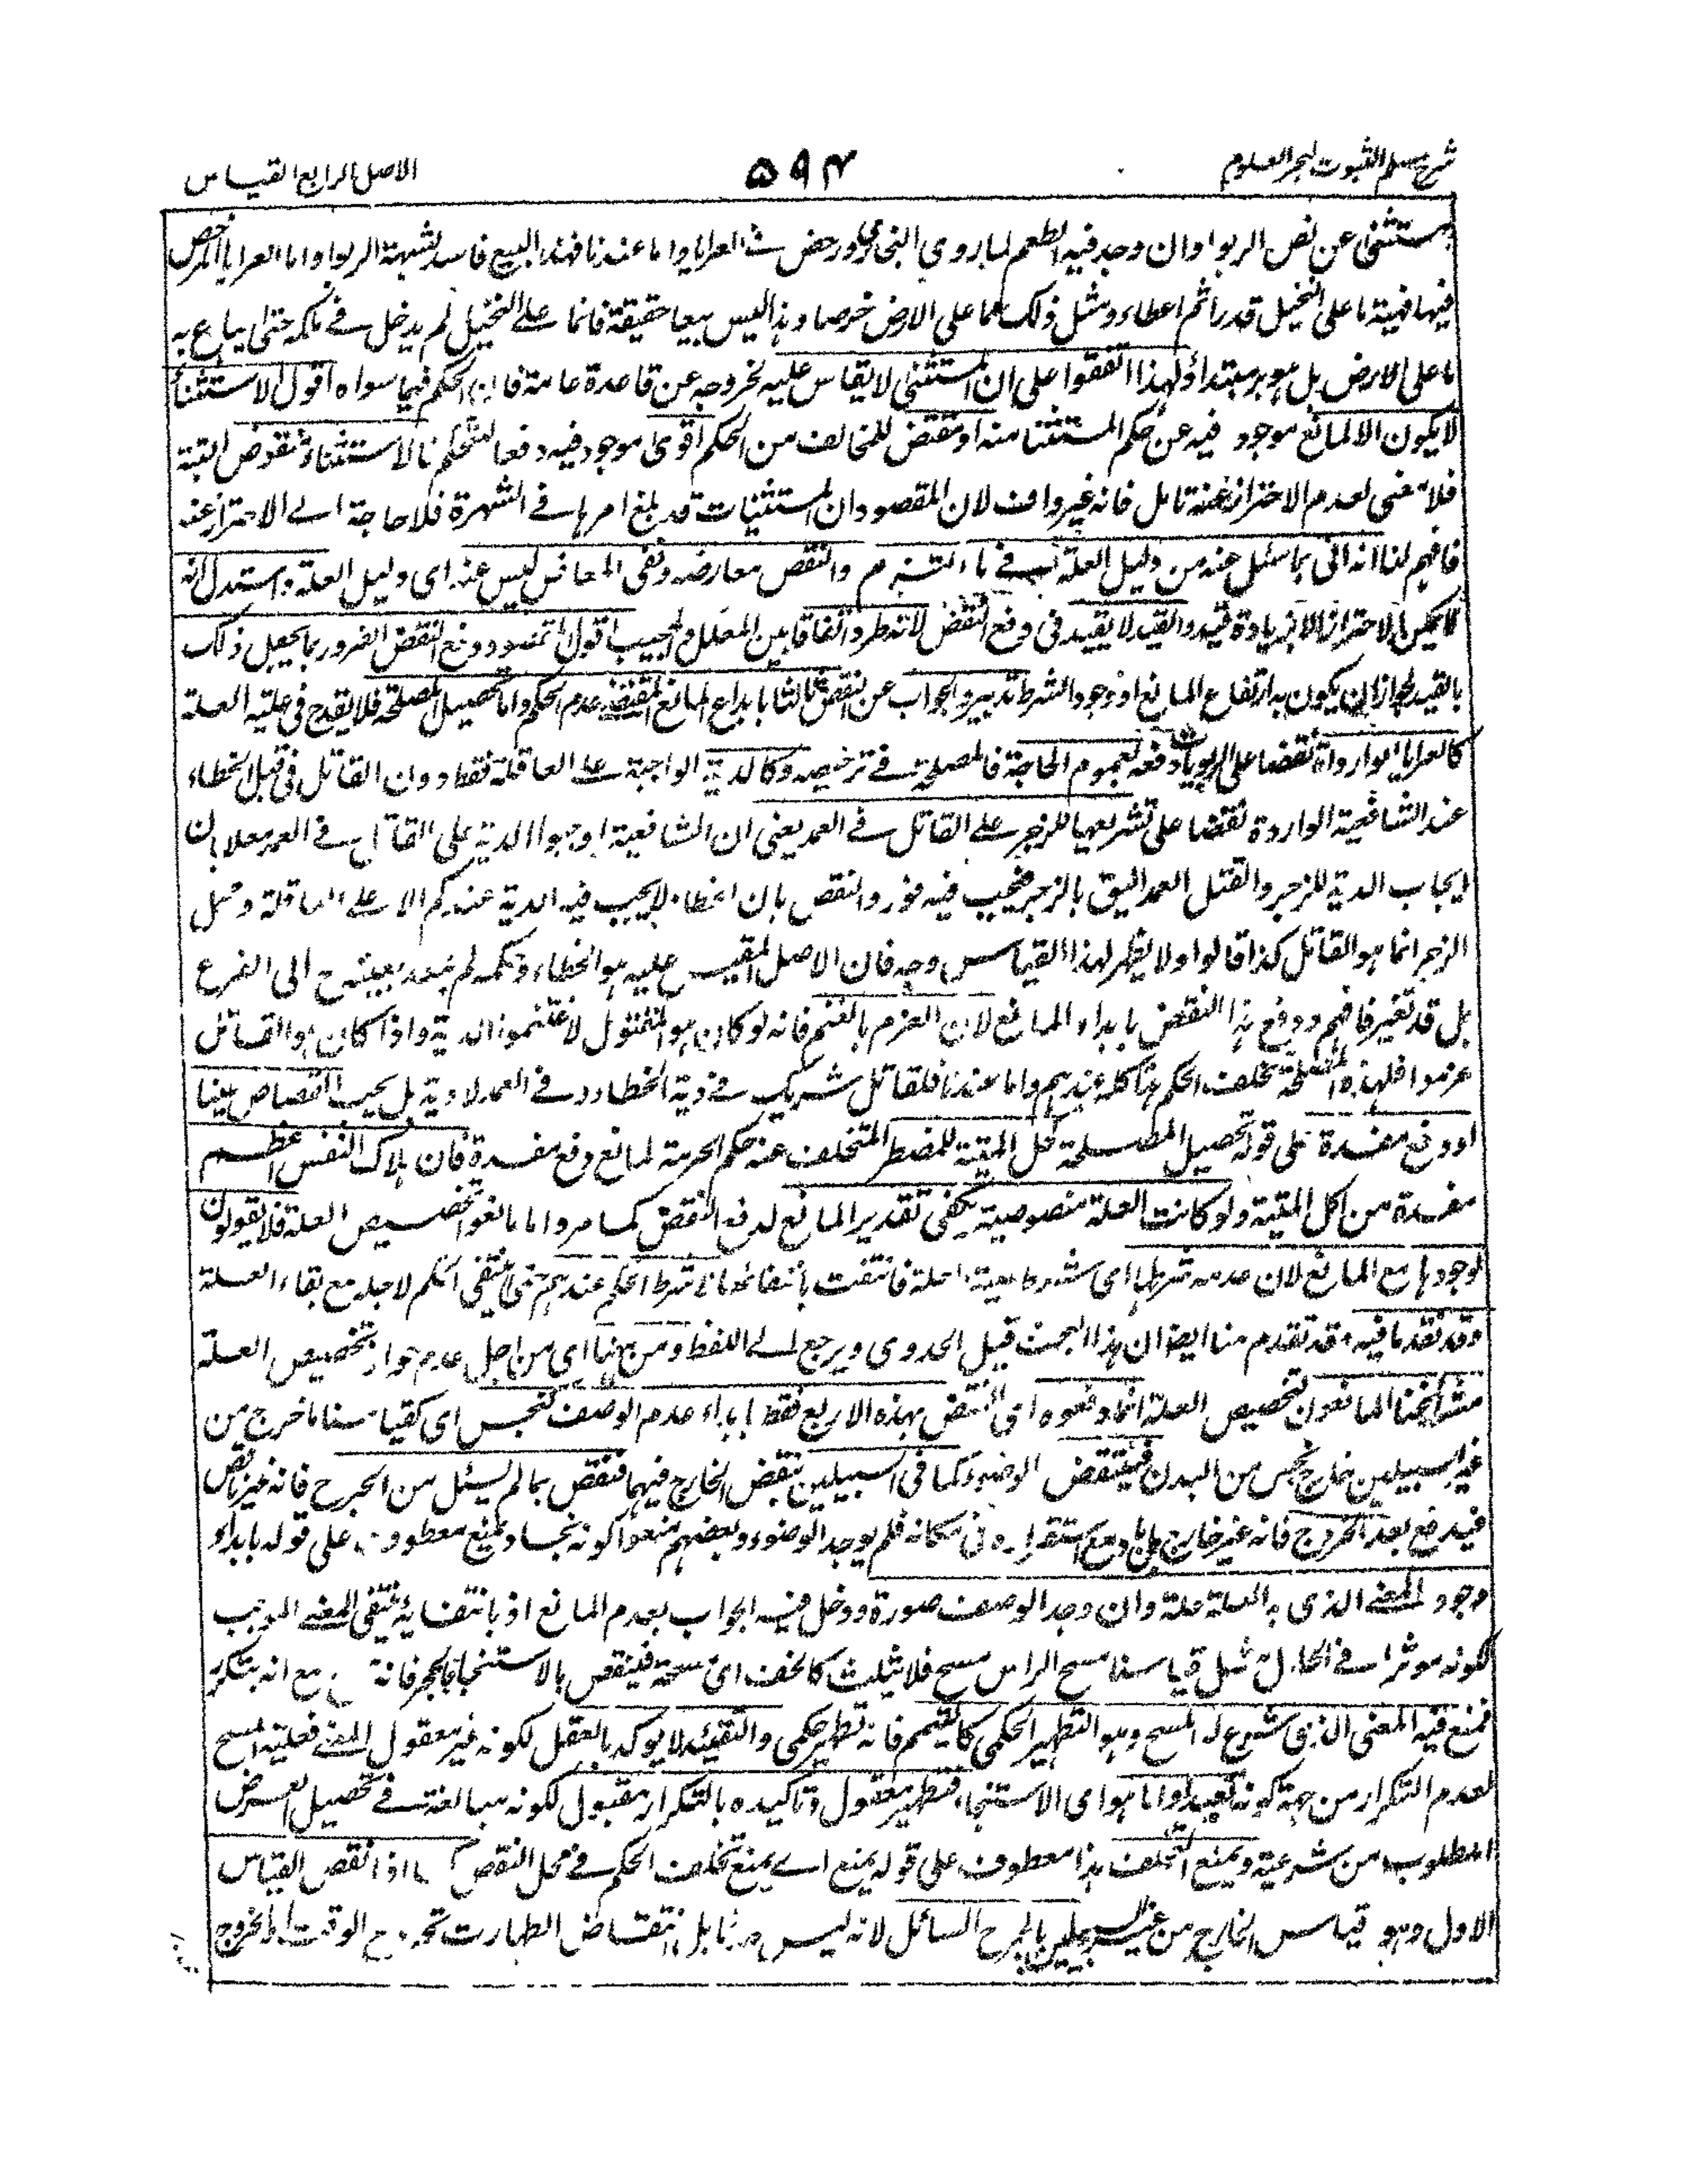 شرح مسلم الثبوت لبحر العلوم
۵۹۴
الاصل الرابع القياس
مستثنى عن نص الربوا وان وجد فيه الطعم لما روى البخارى ورخص فى العرايا واما عندنا فهذا البيع فاسد لشبهة الربوا واما العرايا المرخص
فيها فهبة ما على النخيل قدرا ثم اعطاء ومثل ذلك مما على الارض خرصا وهذا ليس بيعا حقيقة فانما على النخيل لم يدخل فى ملكه حتى يباع به
ما على الارض بل هو بر مبتدأ ولهذا اتفقوا على ان المستثنى لا يقاس عليه لخروجه عن قاعدة عامة فان الحكم فيما سواه اقول الاستثناء
لا يكون الا لمانع موجود فيه عن حكم المستثنا منه او مقتض للمخالف من الحكم اقوى موجود فيه دفعا للتحكم فالاستثناء منقوض البتة
فلا معنى لعدم الاحتراز عنه تامل فانه غير واف لان المقصود ان المستثنيات قد بلغ امرها فى الشهرة فلا حاجة الى الاحتراز عنه
فافهم لنا انه اتى بما سئل عنه من دليل العلة والنقض معارضه ونفى المعارض ليس عنه اى دليل العلة واستدل انه
لا يمكن الاحتراز الا بزيادة قيد والقيد لا يفيد فى دفع النقض لانه طرد اتفاقا بين المعلل والمجيب اقول المقصود دفع النقض الضرور بما يجعل ذلك
بالقيد لجواز ان يكون به ارتفاع المانع او وجود الشرط تدبر والجواب عن النقض ثالثا بابداع المانع المقتضى عدم الحكم واما تحصيل المصلحة فلا يقدح فى علية العلة
كالعرايا الواردة نقضا على الربويات دفعه لعموم الحاجة فالمصلحة فى ترخيصه وكالدية الواجبة على العاقلة فقط دون القاتل فى قتل الخطاء
عند الشافعية الواردة نقضا على تشريعها للزجر على القاتل فى العمد يعنى ان الشافعية اوجبوا الدية على القاتل فى العمد معللا بان
ايجاب الدية للزجر والقتل العمد اليق بالزجر فيجب فيه والنقض بان الخطاء لا يجب فيه الدية عندكم الا على العاقلة ومحل
الزجر انما هو القاتل كذا قالوا ولا يظهر لهذا القياس وجه فان الاصل المقيس عليه هو الخطاء وحكمه لم يتعد بعينه ح الى الفرع
بل قد تغير فافهم ودفع هذا النقض بابداء المانع لان الغرم بالغنم فانه لو كان هو المقتول لاغتنموا الدية واذا كان هو القاتل
غرموا فلهذه المصلحة تخلف الحكم هذا كله عندهم واما عندنا فللقاتل شريك فى دية الخطاء وفى العمد لا دية بل يجب القصاص عينا
او دفع مفسدة على قوله تحصيل المصلحة كحل الميتة للمضطر المتخلف عنه حكم الحرمة لمانع دفع مفسدة فان هلاك النفس اعظم
مفسدة من اكل الميتة ولو كانت العلة منصوصية يكفى تقدير المانع لدفع النقض كما مر واما مانعوا تخصيص العلة فلا يقولون
لوجودها مع المانع لان عدمه شرطها اى شرط علية العلة فانتفت بانتفائه لا شرط الحكم عندهم حتى ينتفى الحكم لاجله مع بقاء العلة
وقد تقدم ما فيه وقد تقدم منا ايضا ان هذا البحث قبيل الجدوى ويرجع الى اللفظ ومن ههنا اى من اجل عدم جواز تخصيص العلة
مشائخنا المانعون لتخصيص العلة انما دفعوه اى النقض بهذه الاربع فقط بابداء عدم الوصف كنجس اى كقياسنا ما خرج من
غير السبيلين خارج نجس من البدن فينتقض الوضوء كما فى السبيلين ينقض الخارج فيهما فنقض بما لم يسئل من الجرح فانه غير ناقض
فيدفع بعدم الخروج فانه غير خارج بل باد مع استقراره فى مكانه فلم يوجد الوضوء وبعضهم منعوا كونه نجسا وبمنع معطوف على قوله بابداء
وجود المعنى الذى به العلة علة وان وجد الوصف صورة ودخل فيه الجواب بعدم المانع اذ بانتفائه ينتفى المعنى الموجب
لكونه موثرا فى الحال مثل قياسنا مسح الراس مسح فلا يثلث كالخف اى مسحه فينقض بالاستنجاء بالحجر فانه مع انه يتكرر
فمنع فيه المعنى الذى شرع له المسح وهو التطهير الحكمى كالتيمم فانه تطهير حكمى لا يوكد بالعقل لكونه غير معقول المعنى فعلية المسح
لعدم التكرار من جهة كونه تعبدا واما هو اى الاستنجاء فتطهير معقول وتاكيده بالتكرار مقبول لكونه مبالغة فى تحصيل الغرض
المطلوب من شرعيته وبمنع التخلف هذا معطوف على قوله بمنع اى بمنع تخلف الحكم فى محل النقض كما اذا نقض القياس
الاول وهو قياس الخارج من غير السبيلين بالجرح السائل لانه ليس حدثا بل انتقاض الطهارت بخروج الوقت لا الخروج